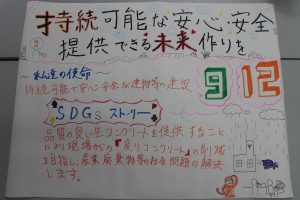 持続可能な安心・安全
提供できる未来作りを
～私達の使命～
持続可能で安心・安全な建物等の建設
9 12
SDGsストーリー
品質の良い生コンクリートを提供すること
により現場からの『戻りコンクリート』の削減
を目指し、産業廃棄物等の社会問題の解決
します。